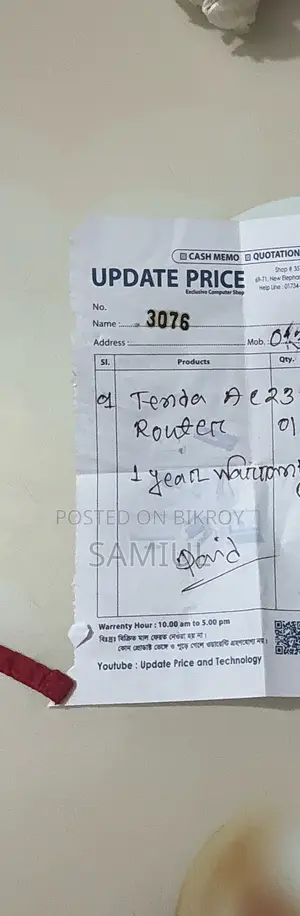 CASH MEMO QUOTATION
UPDATE PRICE
Exclusive Computer Shop
Shop # 35
69-71, New Elephan
Help Line : 01734-
No.
3076
Name :
Address : Mob. :
Sl. Products Qty.
Tenda AC23
Router 01
1 year
Paid
POSTED ON BIKROY
SAMIUL
Warrenty Hour : 10.00 am to 5.00 pm
বিঃদ্রঃ বিক্রিত মাল ফেরত নেওয়া হয় না।
কোন প্রোডাক্ট ভেঙ্গে ও পুড়ে গেলে ওয়ারেন্টি গ্রহণযোগ্য নয়।
Youtube : Update Price and Technology